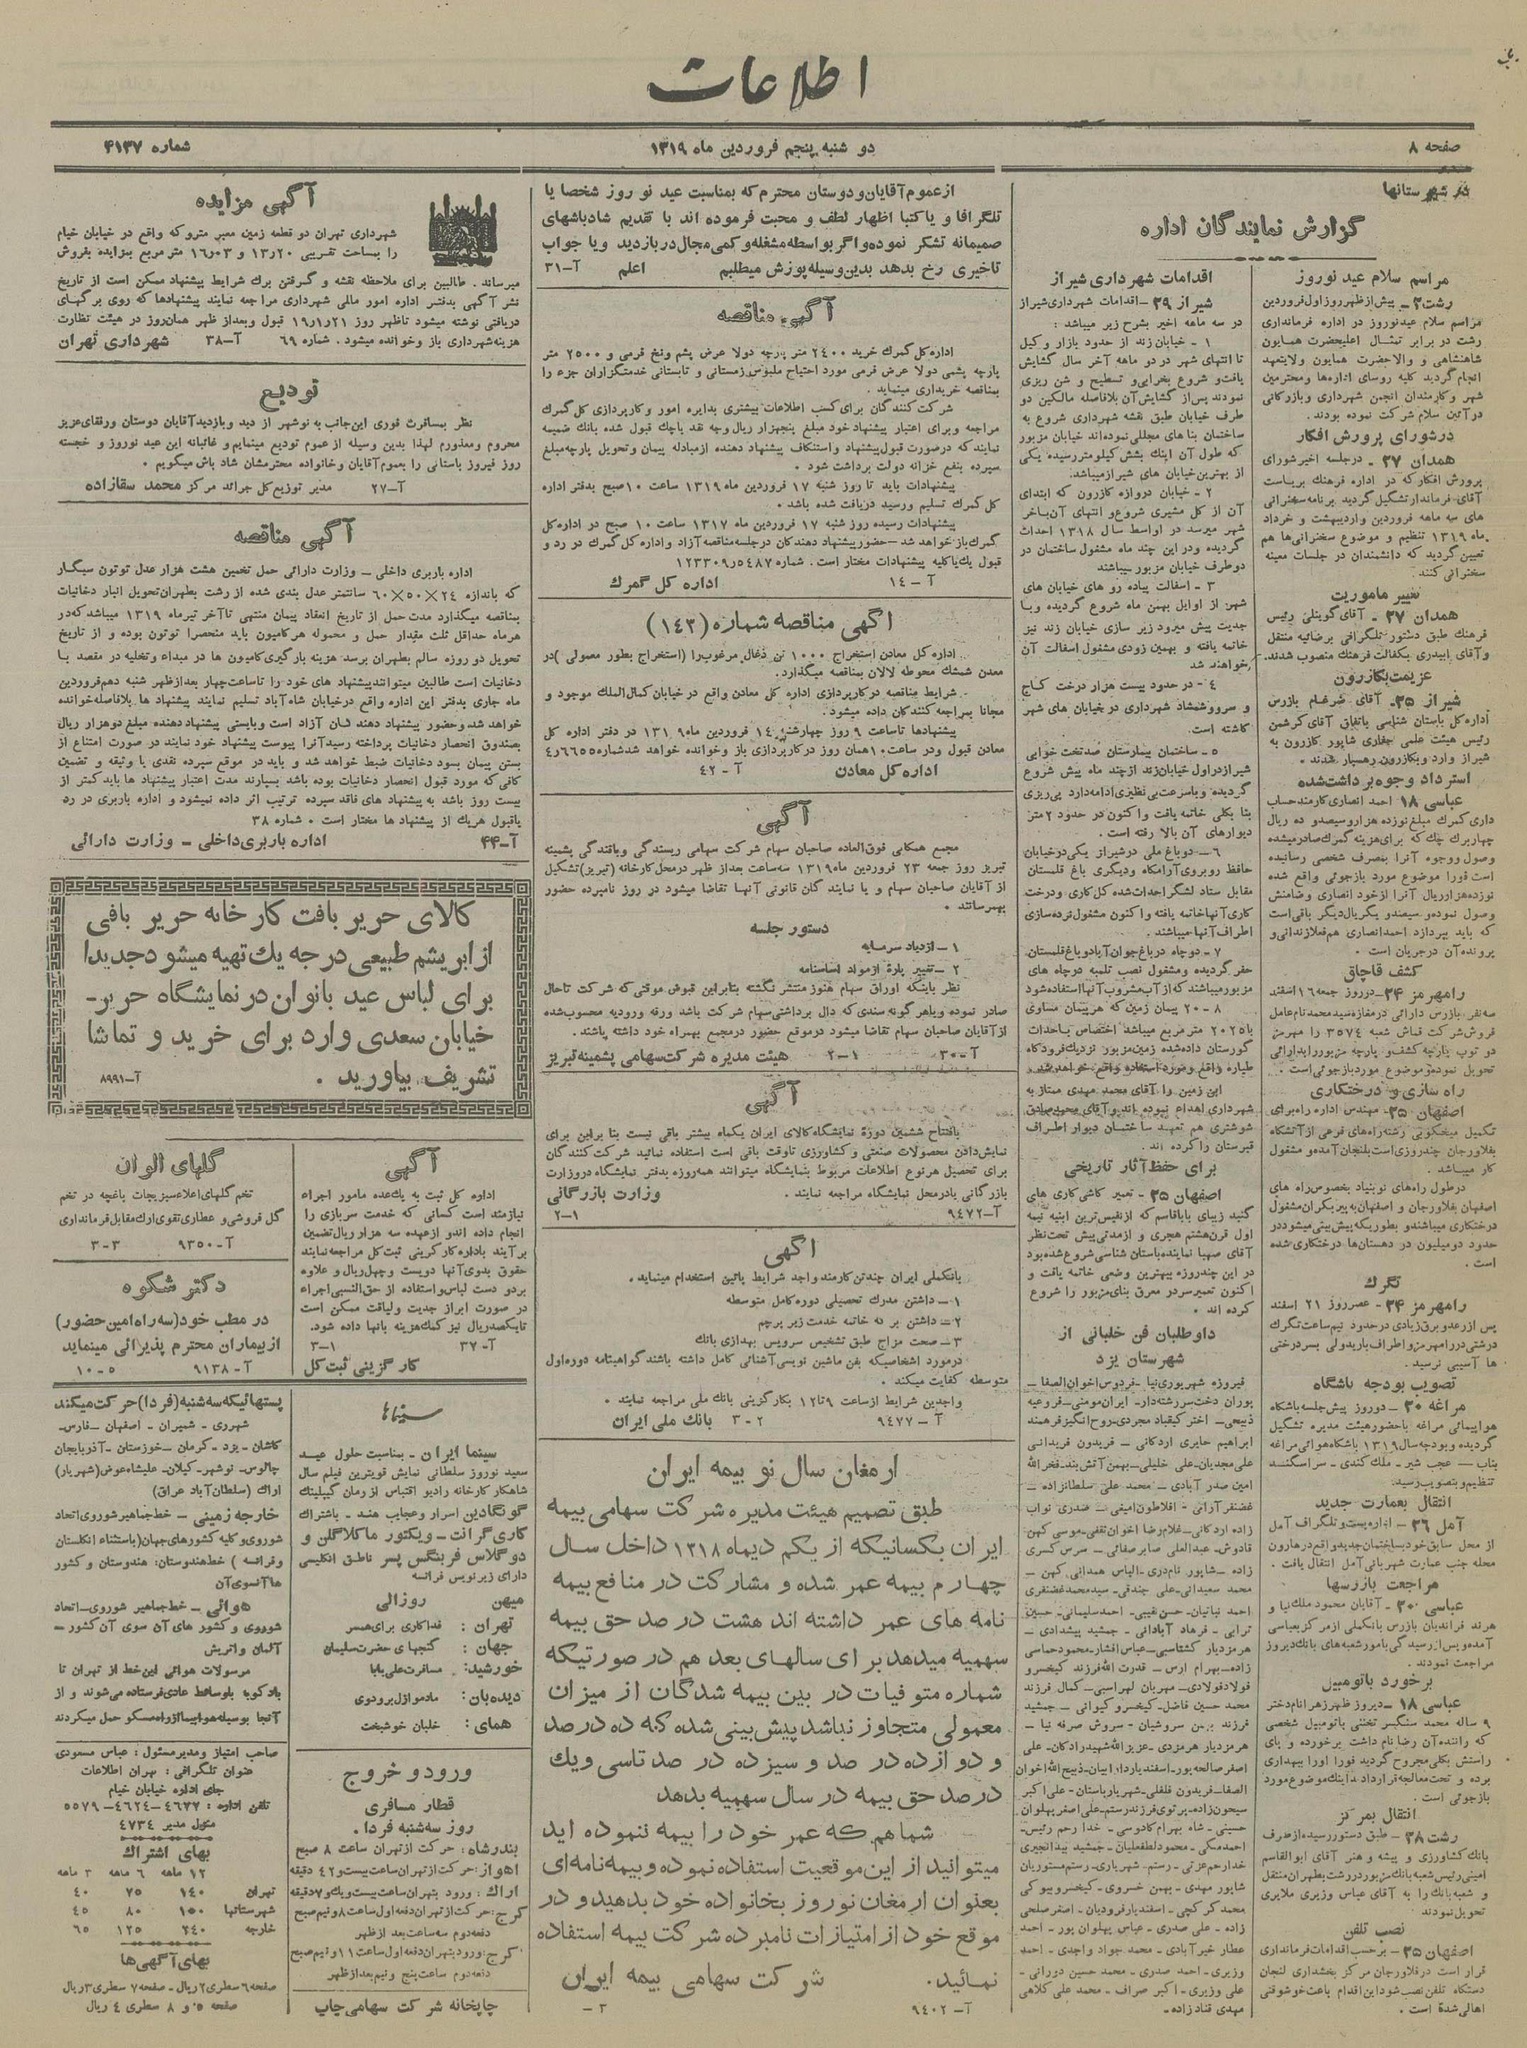 اطلاعات
صفحه ۸
دو شنبه پنجم فروردین ماه ۱۳۱۹
شماره ۴۱۳۷
در شهرستانها
گزارش نمایندگان اداره
مراسم سلام عید نوروز
رشت ۲ـ پیش از ظهر روز اول فروردین
مراسم سلام عید نوروز در اداره فرمانداری
رشت در برابر تمثال اعلیحضرت همایون
شاهنشاهی و والاحضرت همایون ولایتعهد
انجام گردید کلیه روسای اداره‌ها و محترمین
شهر و کارمندان انجمن شهرداری و بازرگانی
در آئین سلام شرکت نموده بودند.
در شورای پرورش افکار
همدان ۲۷ـ در جلسه اخیر شورای
پرورش افکار که در اداره فرهنگ بریاست
آقای فرماندار تشکیل گردید برنامه سخنرانی
های سه ماهه فروردین و اردیبهشت و خرداد
ماه ۱۳۱۹ تنظیم و موضوع سخنرانی‌ها هم
تعیین گردید که دانشمندان در جلسات معینه
سخنرانی کنند.
تغییر ماموریت
همدان ۲۷ـ آقای گوینلی رئیس
فرهنگ طبق دستور تلگرافی برضائیه منتقل
و آقای ابیدری بکفالت فرهنگ منصوب شدند.
عزیمت بکازرون
شیراز ۲۵ـ آقای ضرغام بازرس
اداره کل باستان شناسی باتفاق آقای گرشمن
رئیس هیئت علمی حفاری شاپور کازرون به
شیراز وارد و بکازرون رهسپار شدند.
استرداد وجوه برداشت شده
عباسی ۱۸ احمد انصاری کارمند حساب
داری گمرک مبلغ نوزده هزار و سیصد و ده ریال
چهار برگ چک که برای هزینه گمرک صادر میشده
وصول و وجوه آنرا بمصرف شخصی رسانیده
است فورا موضوع مورد بازجوئی واقع شده
نوزده هزار ریال آنرا از خود انصاری و ضامنش
وصول نموده و سیصد و یک ریال دیگر باقی است
که باید بپردازد احمد انصاری هم فعلا زندانی و
پرونده آن در جریان است.
کشف قاچاق
رامهرمز ۲۴ـ در روز جمعه ۱۶ اسفند
سه نفر بازرس دارائی در مغازه سید محمد نام عامل
فروش شرکت قماش شعبه ۳۵۷۴ رامهرمز
دو توپ پارچه کشف و پارچه مزبور را بدارائی
تحویل نموده و موضوع مورد بازجوئی است.
راه سازی و درختکاری
اصفهان ۲۵ـ مهندس اداره راه برای
تکمیل میخکوبی رشته راه‌های فرعی از آتشگاه
بفلاورجان چند روزی است بلنجان آمده و مشغول
کار میباشد.
در طول راه‌های نوبنیاد بخصوص راه های
اصفهان بفلاورجان و اصفهان به پیربکران مشغول
درختکاری میباشند و بطوریکه پیش بینی میشود در
حدود دو میلیون در دهستان‌ها درختکاری شده
است.
تگرگ
رامهرمز ۲۴ـ عصر روز ۲۱ اسفند
پس از رعد و برق زیادی در حدود نیم ساعت تگرگ
درشتی در رامهرمز و اطراف بارید ولی بسر درختی
ها آسیبی نرسید.
تصویب بودجه باشگاه
مراغه ۲۰ـ دو روز پیش جلسه باشگاه
هواپیمائی مراغه با حضور هیئت مدیره تشکیل
گردید و بودجه سال ۱۳۱۹ باشگاه هوائی مراغه
بناب ـ عجب شیر ـ ملک کندی ـ سراسکند
تنظیم و بتصویب رسید.
انتقال بعمارت جدید
آمل ۲۶ـ اداره پست و تلگراف آمل
از محل سابق خود بساختمان جدید واقع در هارون
محله جنب عمارت شهربانی آمل انتقال یافت.
مراجعت بازرسها
عباسی ۲۰ـ آقایان محمود ملک نیا و
هرند قراندیان بازرس بانک ملی از مرکز بعباسی
آمده و پس از رسیدگی بامور شعبه های بانک دیروز
مراجعت نمودند.
برخورد باتومبیل
عباسی ۱۸ـ دیروز ظهر زهرا نام دختر
۹ ساله محمد سنگبر تختتی باتومبیل شخصی
که راننده آن رضا نام داشت برخورده و پای
راستش بکلی مجروح گردید فورا او را ببهداری
بوده و تحت معالجه قرار داده اینک موضوع مورد
بازجوئی است.
انتقال بمرکز
رشت ۲۸ـ طبق دستور رسیده از طرف
بانک کشاورزی و پیشه و هنر آقای ابوالقاسم
امینی رئیس شعبه بانک مزبور در رشت بطهران منتقل
و شعبه بانک را به آقای عباس وزیری ملایری
تحویل نمودند
نصب تلفن
اصفهان ۲۵ـ برحسب اقدامات فرمانداری
قرار است در فلاورجان مرکز بخشداری لنجان
دستگاه تلفن نصب شود این اقدام باعث خوشوقتی
اهالی شده است.
اقدامات شهرداری شیراز
شیراز ۲۹ـ اقدامات شهرداری شیراز
در سه ماهه اخیر بشرح زیر میباشد:
۱ـ خیابان زند از حدود بازار وکیل
تا انتهای شهر در دو ماهه آخر سال گشایش
یافت و شروع بخرابی و تسطیح و شن ریزی
نمودند پس از گشایش آن بلافاصله مالکین دو
طرف خیابان طبق نقشه شهرداری شروع به
ساختمان بناهای مجللی نموده‌اند خیابان مزبور
که طول آن اینک بشش کیلومتر رسیده یکی
از بهترین خیابان های شیراز میباشد.
۲ـ خیابان دروازه کازرون که ابتدای
آن از کل مشیری شروع و انتهای آن بآخر
شهر میرسد در اواسط سال ۱۳۱۸ احداث
گردیده و در این چند ماه مشغول ساختمان در
دو طرف خیابان مزبور میباشند
۳ـ اسفالت پیاده رو های خیابان های
شهر از اوایل بهمن ماه شروع گردیده و با
جدیت پیش میرود زیر سازی خیابان زند نیز
خاتمه یافته و بهمین زودی مشغول اسفالت آن
خواهند شد
۴ـ در حدود بیست هزار درخت کاج
و سرو و شمشاد شهرداری در خیابان های شهر
کاشته است.
۵ـ ساختمان بیمارستان صد تخت خوابی
شیراز در اول خیابان زند از چند ماه پیش شروع
گردیده و با سرعت بی نظیری ادامه دارد پی ریزی
بنا بکلی خاتمه یافت و اکنون در حدود ۲ متر
دیوارهای آن بالا رفته است.
۶ـ دو باغ ملی در شیراز یکی در خیابان
حافظ روبروی آرامگاه و دیگری باغ قلمستان
مقابل ستاد لشگر احداث شده گل کاری و درخت
کاری آنها خاتمه یافته و اکنون مشغول نرده سازی
اطراف آنها میباشند.
۷ـ دو چاه در باغ جوان آباد و باغ قلمستان
حفر گردیده و مشغول نصب تلمبه در چاه های
مزبور میباشند که از آب مشروب آنها استفاده شود
۸ـ ۲۰ پیمان زمین که هر پیمان مساوی
با ۲۰۲۵ متر مربع میباشد اختصاص باحداث
گورستان داده شده زمین مزبور نزدیک فرودگاه
طیاره واقع و مورد استفاده واقع خواهد شد
این زمین را آقای محمد مهدی ممتاز به
شهرداری اهدام نموده اند و آقای محمد صادق
شوشتری هم تعهد ساختمان دیوار اطراف
قبرستان را کرده اند.
برای حفظ آثار تاریخی
اصفهان ۲۵ـ تعمیر کاشی کاری های
گنبد زیبای باباقاسم که از نفیس ترین ابنیه نیمه
اول قرن هشتم هجری و از مدتی پیش تحت نظر
آقای صهبا نماینده باستان شناسی شروع شده بود
در این چند روزه ببهترین وضعی خاتمه یافت و
اکنون تعمیر سردر معرق بنای مزبور را شروع
کرده اند.
داوطلبان فن خلبانی از
شهرستان یزد
فیروزه شهریوری نیا ـ فردوس اخوان الصفا ـ
پوران دخت سررشته‌دار ـ ایران مومنی ـ فروغیه
ذبیحی ـ اختر کیقباد مجردی ـ روح انگیز فرهمند
ابراهیم حایری اردکانی ـ فریدون فریدانی
علی مجدیان ـ علی خلیلی ـ بهمن آتش بند ـ فخرالله
امین صدر آبادی ـ محمد علی سلطانزاده ـ
غضنفر آرانی ـ افلاطون امیقی ـ صدری نواب
زاده اردکانی ـ غلام رضا اخوان ثقفی ـ موسی کهن
قادوش ـ عبدالعلی صابر صفائی ـ سرس کسری
زاده ـ شاپور نام‌دری ـ الیاس همدانی کهن ـ
محمد سعیدانی ـ علی جندقی ـ سید محمد غضنفری
احمد نباتیان ـ حسن نقیبی ـ احمد سلیمانی ـ حسین
ترابی ـ فرهاد آبادانی ـ جمشید پیشدادی ـ
هرمزدیار گشتاسبی ـ عباس افشار ـ محمود حماسی
زاده ـ بهرام ارس ـ قدرت الله فرزند کیخسرو
فولاد فولادی ـ مهربان لهراسبی ـ کمال فرزند
محمد حسین فاضل ـ کیخسرو کیوانی ـ جمشید
فرزند بهمن سروشیان ـ سروش صرفه نیا ـ
هرمزدیار هرمزدی ـ عزیزالله شهید رادکان ـ علی
اصغر صالحه پور ـ اسفندیار دارابیان ـ ذبیح الله اخوان
الصفا ـ فریدون فلفلی ـ شهریار باستان ـ علی اکبر
سیحون زاده ـ پرتوی فرزند رستم ـ علی اصغر پهلوان
حسینی ـ شاه بهرام کادوسی ـ خدا رحم رئیس ـ
احمد مکی ـ محمود لطفعلیان ـ جمشید بیدانجیری
خدارحم عزتی ـ رستم شهریاری ـ رستم مستوریان
شاپور مهدی ـ بهمن خسروی ـ کیخسرو بیوکی
محمد کرکچی ـ اسفندیار رودیان ـ اصغر صلحی
زاده ـ علی صدری ـ عباس پهلوان پور ـ احمد
عطار خیرآبادی ـ محمد جواد واجدی ـ احمد
وزیری ـ احمد صدری ـ محمد حسین دورانی ـ
علی وزیری ـ اکبر صراف ـ محمد علی کلاهی
مهدی قنادزاده ـ
از عموم آقایان و دوستان محترم که بمناسبت عید نو روز شخصا یا
تلگرافا و یا کتبا اظهار لطف و محبت فرموده اند با تقدیم شادباشهای
صمیمانه تشکر نموده و اگر بواسطه مشغله و کمی مجال در بازدید و یا جواب
تاخیری رخ بدهد بدین وسیله پوزش میطلبم اعلم آـ۳۱
آگهی مناقصه
اداره کل گمرک خرید ۲۴۰۰ متر پارچه دولا عرض پشم ونخ فرمی و ۲۵۰۰ متر
پارچه پشمی دولا عرض فرمی مورد احتیاج ملبوس زمستانی و تابستانی خدمتگزاران جزء را
بمناقصه خریداری مینماید.
شرکت کنندگان برای کسب اطلاعات بیشتری بدایره امور و کارپردازی کل گمرک
مراجعه و برای اعتبار پیشنهاد خود مبلغ پنجهزار ریال وجه نقد یا چک قبول شده بانک ضمیمه
نمایند که در صورت قبول پیشنهاد و استنکاف پیشنهاد دهنده از مبادله پیمان و تحویل پارچه مبلغ
سپرده بنفع خزانه دولت برداشت شود.
پیشنهادات باید تا روز شنبه ۱۷ فروردین ماه ۱۳۱۹ ساعت ۱۰ صبح بدفتر اداره
کل گمرک تسلیم و رسید دریافت شده باشد.
پیشنهادات رسیده روز شنبه ۱۷ فروردین ماه ۱۳۱۷ ساعت ۱۰ صبح در اداره کل
گمرک باز خواهد شد ـ حضور پیشنهاد دهندگان در جلسه مناقصه آزاد و اداره کل گمرک در رد و
قبول یک یا کلیه پیشنهادات مختار است. شماره ۱۲۳۳۰۹ر۵۴۸۷
آـ ۱۴ اداره کل گمرک
آگهی مناقصه شماره (۱۴۳)
اداره کل معادن استخراج ۱۰۰۰ تن ذغال مرغوب را (استخراج بطور معمولی) در
معدن شمشک محوطه لالان بمناقصه میگذارد.
شرایط مناقصه در کارپردازی اداره کل معادن واقع در خیابان کمال الملک موجود و
مجانا بمراجعه کنندگان داده میشود.
پیشنهادها تا ساعت ۹ روز چهارشنبه ۱۴ فروردین ماه ۱۳۱۹ در دفتر اداره کل
معادن قبول و در ساعت ۱۰ همان روز در کارپردازی باز و خوانده خواهد شد شماره ۶۶۵ر۴
اداره کل معادن آـ ۴۲
آگهی
مجمع همگانی فوق‌العاده صاحبان سهام شرکت سهامی ریسندگی و بافندگی پشمینه
تبریز روز جمعه ۲۳ فروردین ماه ۱۳۱۹ سه ساعت بعد از ظهر در محل کارخانه (تبریز) تشکیل
از آقایان صاحبان سهام و یا نمایندگان قانونی آنها تقاضا میشود در روز نامبرده حضور
بهمرسانند.
دستور جلسه
۱ـ ازدیاد سرمایه
۲ـ تغییر پارهٔ از مواد اساسنامه
نظر باینکه اوراق سهام هنوز منتشر نگشته بنابراین قبوض موقتی که شرکت تاحال
صادر نموده و یا هر گونه سندی که دال برداشتی سهام شرکت باشد ورقه ورودیه محسوب شده
از آقایان صاحبان سهام تقاضا میشود در موقع حضور در مجمع بهمراه خود داشته باشند.
آـ ۳۰ ۱ـ۲ هیئت مدیره شرکت سهامی پشمینه تبریز
آگهی
بافتتاح ششمین دوره نمایشگاه کالای ایران یکماه بیشتر باقی نیست بنابراین برای
نمایش دادن محصولات صنعتی و کشاورزی تا وقت باقی است استفاده نمائید شرکت کنندگان
برای تحصیل هر نوع اطلاعات مربوط بنمایشگاه میتوانند همه روزه بدفتر نمایشگاه در وزارت
بازرگانی یا در محل نمایشگاه مراجعه نمایند. وزارت بازرگانی
آـ ۹۴۷۲ ۱ـ۲
آگهی
بانک ملی ایران چند تن کارمند واجد شرایط پائین استخدام مینماید.
۱ـ داشتن مدرک تحصیلی دوره کامل متوسطه
۲ـ داشتن برگه خاتمه خدمت زیر پرچم
۳ـ صحت مزاج طبق تشخیص سرویس بهداری بانک
در مورد اشخاصیکه بفن ماشین نویسی آشنائی کامل داشته باشند گواهینامه دوره اول
متوسطه کفایت میکند.
واجدین شرایط از ساعت ۹ تا ۱۲ بکارگزینی بانک ملی مراجعه نمایند.
آـ ۹۴۷۷ ۲ـ۳ بانک ملی ایران
ارمغان سال نو بیمه ایران
طبق تصمیم هیئت مدیره شرکت سهامی بیمه
ایران بکسانیکه از یکم دیماه ۱۳۱۸ داخل سال
چهارم بیمه عمر شده و مشارکت در منافع بیمه
نامه های عمر داشته اند هشت در صد حق بیمه
سهمیه میدهد برای سالهای بعد هم در صورتیکه
شماره متوفیات در بین بیمه شدگان از میزان
معمولی متجاوز نباشد پیش بینی شده که ده در صد
و دوازده در صد و سیزده در صد تا سی و یک
در صد حق بیمه در سال سهمیه بدهد
شما هم که عمر خود را بیمه ننموده اید
میتوانید از این موقعیت استفاده نموده و بیمه نامه‌ای
بعنوان ارمغان نوروز بخانواده خود بدهید و در
موقع خود از امتیازات نامبرده شرکت بیمه استفاده
نمائید. شرکت سهامی بیمه ایران
آـ ۹۴۰۲ ـ ۳
آگهی مزایده
شهرداری تهران دو قطعه زمین معبر متروکه واقع در خیابان خیام
را بمساحت تقریبی ۲۰ر۱۳ و ۰۳ر۱۶ متر مربع بمزایده بفروش
میرساند. طالبین برای ملاحظه نقشه و گرفتن برگ شرایط پیشنهاد ممکن است از تاریخ
نشر آگهی بدفتر اداره امور مالی شهرداری مراجعه نمایند پیشنهادها که روی برگهای
دریافتی نوشته میشود تا ظهر روز ۱۹ر۱ر۲۱ قبول و بعد از ظهر همان روز در هیئت نظارت
هزینه شهرداری باز و خوانده میشود. شماره ۶۹ آـ ۳۸ شهرداری تهران
تودیع
نظر بمسافرت فوری این جانب به نوشهر از دید و بازدید آقایان دوستان و رفقای عزیز
محروم و معذورم لهذا بدین وسیله از عموم تودیع مینمایم و غائبانه این عید نوروز و خجسته
روز فیروز باستانی را بعموم آقایان و خانواده محترمشان شادباش میگویم.
آـ ۲۷ مدیر توزیع کل جرائد مرکز محمد سقازاده
آگهی مناقصه
اداره باربری داخلی ـ وزارت دارائی حمل تخمین هشت هزار عدل توتون سیگار
که باندازه ۲۴×۵۰×۶۰ سانتمتر عدل بندی شده از رشت بطهران تحویل انبار دخانیات
بمناقصه میگذارد مدت حمل از تاریخ انعقاد پیمان منتهی تا آخر تیر ماه ۱۳۱۹ میباشد که در
هر ماه حداقل ثلث مقدار حمل و محموله هر کامیون باید منحصرا توتون بوده و از تاریخ
تحویل در دو روزه سالم بطهران برسد هزینه بارگیری کامیون ها در مبداء و تخلیه در مقصد با
دخانیات است طالبین میتوانند پیشنهاد های خود را تا ساعت چهار بعد از ظهر شنبه دهم فروردین
ماه جاری بدفتر این اداره واقع در خیابان شاه آباد تسلیم نمایند پیشنهاد ها بلافاصله خوانده
خواهد شد و حضور پیشنهاد دهندگان آزاد است و بایستی پیشنهاد دهنده مبلغ دو هزار ریال
بصندوق انحصار دخانیات پرداخته رسید آنرا پیوست پیشنهاد خود نمایند در صورت امتناع از
بستن پیمان بسود دخانیات ضبط خواهد شد و باید در موقع سپرده نقدی یا وثیقه و تضمین
کافی که مورد قبول انحصار دخانیات بوده باشد بسپارند مدت اعتبار پیشنهاد ها باید کمتر از
بیست روز باشد به پیشنهاد های فاقد سپرده ترتیب اثر داده نمیشود و اداره باربری در رد
یا قبول هر یک از پیشنهاد ها مختار است. شماره ۳۸
آـ ۴۴ اداره باربری داخلی ـ وزارت دارائی
کالای حریر بافت کارخانه حریر بافی
از ابریشم طبیعی درجه یک تهیه میشود جدیدا
برای لباس عید بانوان در نمایشگاه حریر ـ
خیابان سعدی وارد برای خرید و تماشا
تشریف بیاورید. آـ ۸۹۹۱
آگهی
اداره کل ثبت به یکعده مامور اجراء
نیازمند است کسانی که خدمت سربازی را
انجام داده اند و از عهده سه هزار ریال تضمین
برآیند باداره کارگزینی ثبت کل مراجعه نمایند
حقوق بدوی آنها دویست و چهل ریال و علاوه
بر دو دست لباس و استفاده از حق النسبی اجراء
در صورت ابراز جدیت و لیاقت ممکن است
تا یکصد ریال نیز کمک هزینه بآنها داده شود.
آـ ۳۷ ۱ـ۳
کارگزینی ثبت کل
گلهای الوان
تخم گلهای اعلا و سبزیجات باغچه در تخم
گل فروشی و عطاری تقوی ارک مقابل فرمانداری
آـ ۹۳۵۰ ۳ـ۳
دکتر شکوه
در مطب خود (سه راه امین حضور)
از بیماران محترم پذیرائی مینماید
آـ ۹۱۳۸ ۵ـ۱۰
سینماها
سینما ایران ـ بمناسبت حلول عید
سعید نوروز سلطانی نمایش قویترین فیلم سال
شاهکار کارخانه رادیو اقتباس از رمان کیپلینک
گونگادین اسرار و عجایب هند ـ باشتراک
کاری گرانت ـ ویکتور ماکلاگلن و
دوگلاس فربنکس پسر ناطق انگلیسی
دارای زیرنویس فرانسه
میهن روزالی
تهران: فداکاری برای همسر
جهان: گنجهای حضرت سلیمان
خورشید: مسافرت علی بابا
دیده بان: مادموازل برودوی
همای: خلبان خوشبخت
ورود و خروج
قطار مسافری
روز سه شنبه فردا.
بندر شاه: حرکت از تهران ساعت ۸ صبح
اهواز: حرکت از تهران ساعت بیست و ۴۲ دقیقه
اراک: ورود بتهران ساعت بیست و یک و ۷ دقیقه
کرج: حرکت از تهران دفعه اول ساعت ۸ و نیم صبح
دفعه دوم سه ساعت بعد از ظهر
کرج: ورود بتهران دفعه اول ساعت ۱۱ و نیم صبح
دفعه دوم ساعت پنج و نیم بعد از ظهر
چاپخانه شرکت سهامی چاپ
پستهائیکه سه شنبه (فردا) حرکت میکند
شهرری ـ شمیران ـ اصفهان ـ فارس ـ
کاشان ـ یزد ـ کرمان ـ خوزستان ـ آذربایجان
چالوس ـ نوشهر ـ گیلان ـ علیشاه عوض (شهریار)
اراک (سلطان آباد عراق)
خارجه زمینی ـ خط جماهیر شوروی اتحاد
شوروی و کلیه کشورهای جهان (باستثناء انگلستان
و فرانسه) خط هندوستان: هندوستان و کشور
ها آنسوی آن
هوائی ـ خط جماهیر شوروی ـ اتحاد
شوروی و کشور های آن سوی آن کشور ـ
آلمان و اتریش
مرسولات هوائی این خط از تهران تا
بادکوبه با وسائط عادی فرستاده می‌شوند و از
آنجا بوسیله هواپیما از راه مسکو حمل میگردند
صاحب امتیاز و مدیر مسئول: عباس مسعودی
عنوان تلگرافی: تهران اطلاعات
جای اداره خیابان خیام
تلفن اداره: ۴۶۷۷ـ۴۶۲۴ـ۵۵۷۹
منزل مدیر ۴۷۳۴
بهای اشتراک
۱۲ ماهه ۶ ماهه ۳ ماهه
تهران ۱۴۰ ۷۵ ۴۰
شهرستانها ۱۵۰ ۸۰ ۴۵
خارجه ۲۴۰ ۱۲۵ ۶۵
بهای آگهی‌ها
صفحه ۶ سطری ۲ ریال ـ صفحه ۷ سطری ۳ ریال
صفحه ۵ و ۸ سطری ۴ ریال